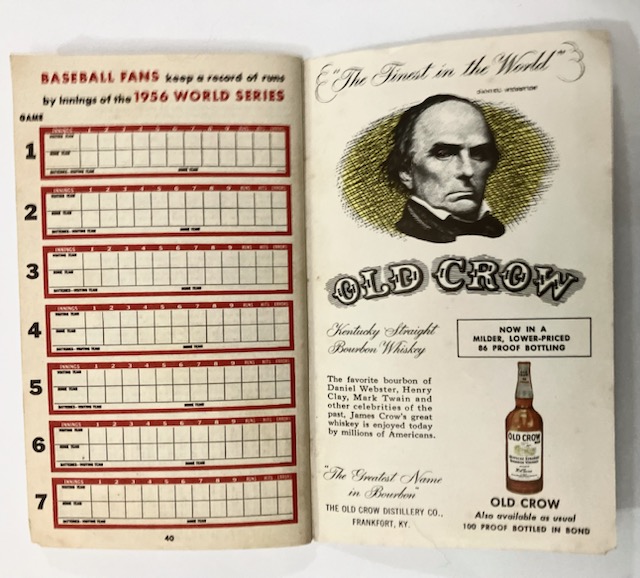 BASEBALL FANS keep a record of runs
by innings of the 1956 WORLD SERIES
GAME
1
INNINGS 1 2 3 4 5 6 7 8 9 RUNS HITS ERRORS
VISITING TEAM
HOME TEAM
BATTERIES—VISITING TEAM HOME TEAM
2
INNINGS 1 2 3 4 5 6 7 8 9 RUNS HITS ERRORS
VISITING TEAM
HOME TEAM
BATTERIES—VISITING TEAM HOME TEAM
3
INNINGS 1 2 3 4 5 6 7 8 9 RUNS HITS ERRORS
VISITING TEAM
HOME TEAM
BATTERIES—VISITING TEAM HOME TEAM
4
INNINGS 1 2 3 4 5 6 7 8 9 RUNS HITS ERRORS
VISITING TEAM
HOME TEAM
BATTERIES—VISITING TEAM HOME TEAM
5
INNINGS 1 2 3 4 5 6 7 8 9 RUNS HITS ERRORS
VISITING TEAM
HOME TEAM
BATTERIES—VISITING TEAM HOME TEAM
6
INNINGS 1 2 3 4 5 6 7 8 9 RUNS HITS ERRORS
VISITING TEAM
HOME TEAM
BATTERIES—VISITING TEAM HOME TEAM
7
INNINGS 1 2 3 4 5 6 7 8 9 RUNS HITS ERRORS
VISITING TEAM
HOME TEAM
BATTERIES—VISITING TEAM HOME TEAM
40
"The Finest in the World"
DANIEL WEBSTER
OLD CROW
Kentucky Straight
Bourbon Whiskey
NOW IN A
MILDER, LOWER-PRICED
86 PROOF BOTTLING
The favorite bourbon of
Daniel Webster, Henry
Clay, Mark Twain and
other celebrities of the
past, James Crow's great
whiskey is enjoyed today
by millions of Americans.
OLD CROW
"The Greatest Name
in Bourbon"
THE OLD CROW DISTILLERY CO.,
FRANKFORT, KY.
OLD CROW
Also available as usual
100 PROOF BOTTLED IN BOND